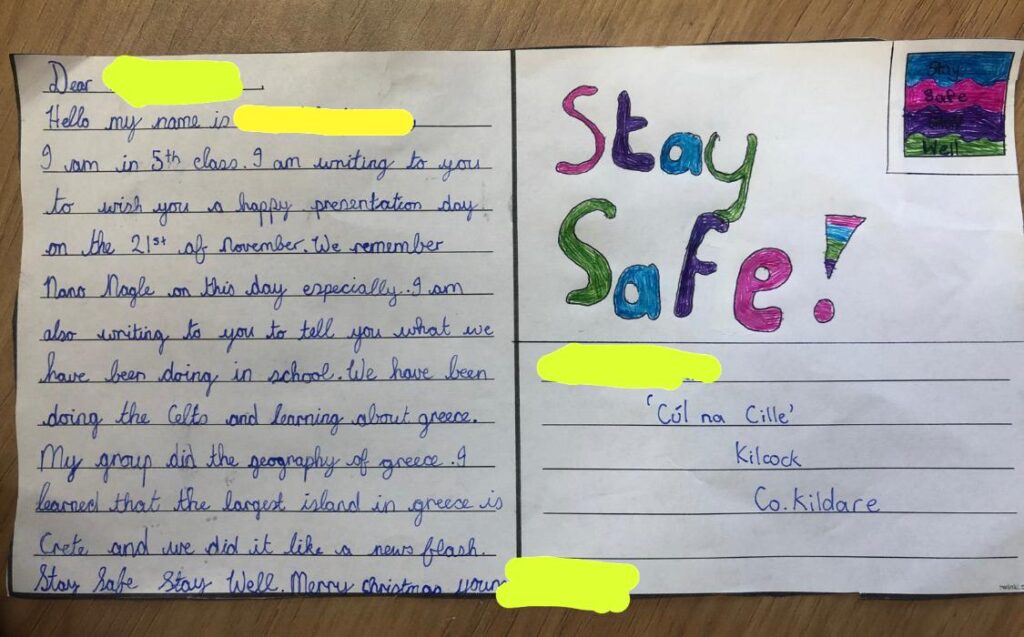 Dear
Hello my name is
I am in 5th class. I am writing to you
to wish you a happy presentation day
on the 21st of november. We remember
Nano Nagle on this day especially. I am
also writing to you to tell you what we
have been doing in school. We have been
doing the Celts and learning about greece.
My group did the geography of greece. I
learned that the largest island in greece is
Crete and we did it like a news flash.
Stay Safe Stay Well. Merry christmas your
Stay
Safe!
Stay
Safe
Stay
Well
'Cúl na Cille'
Kilcock
Co. Kildare